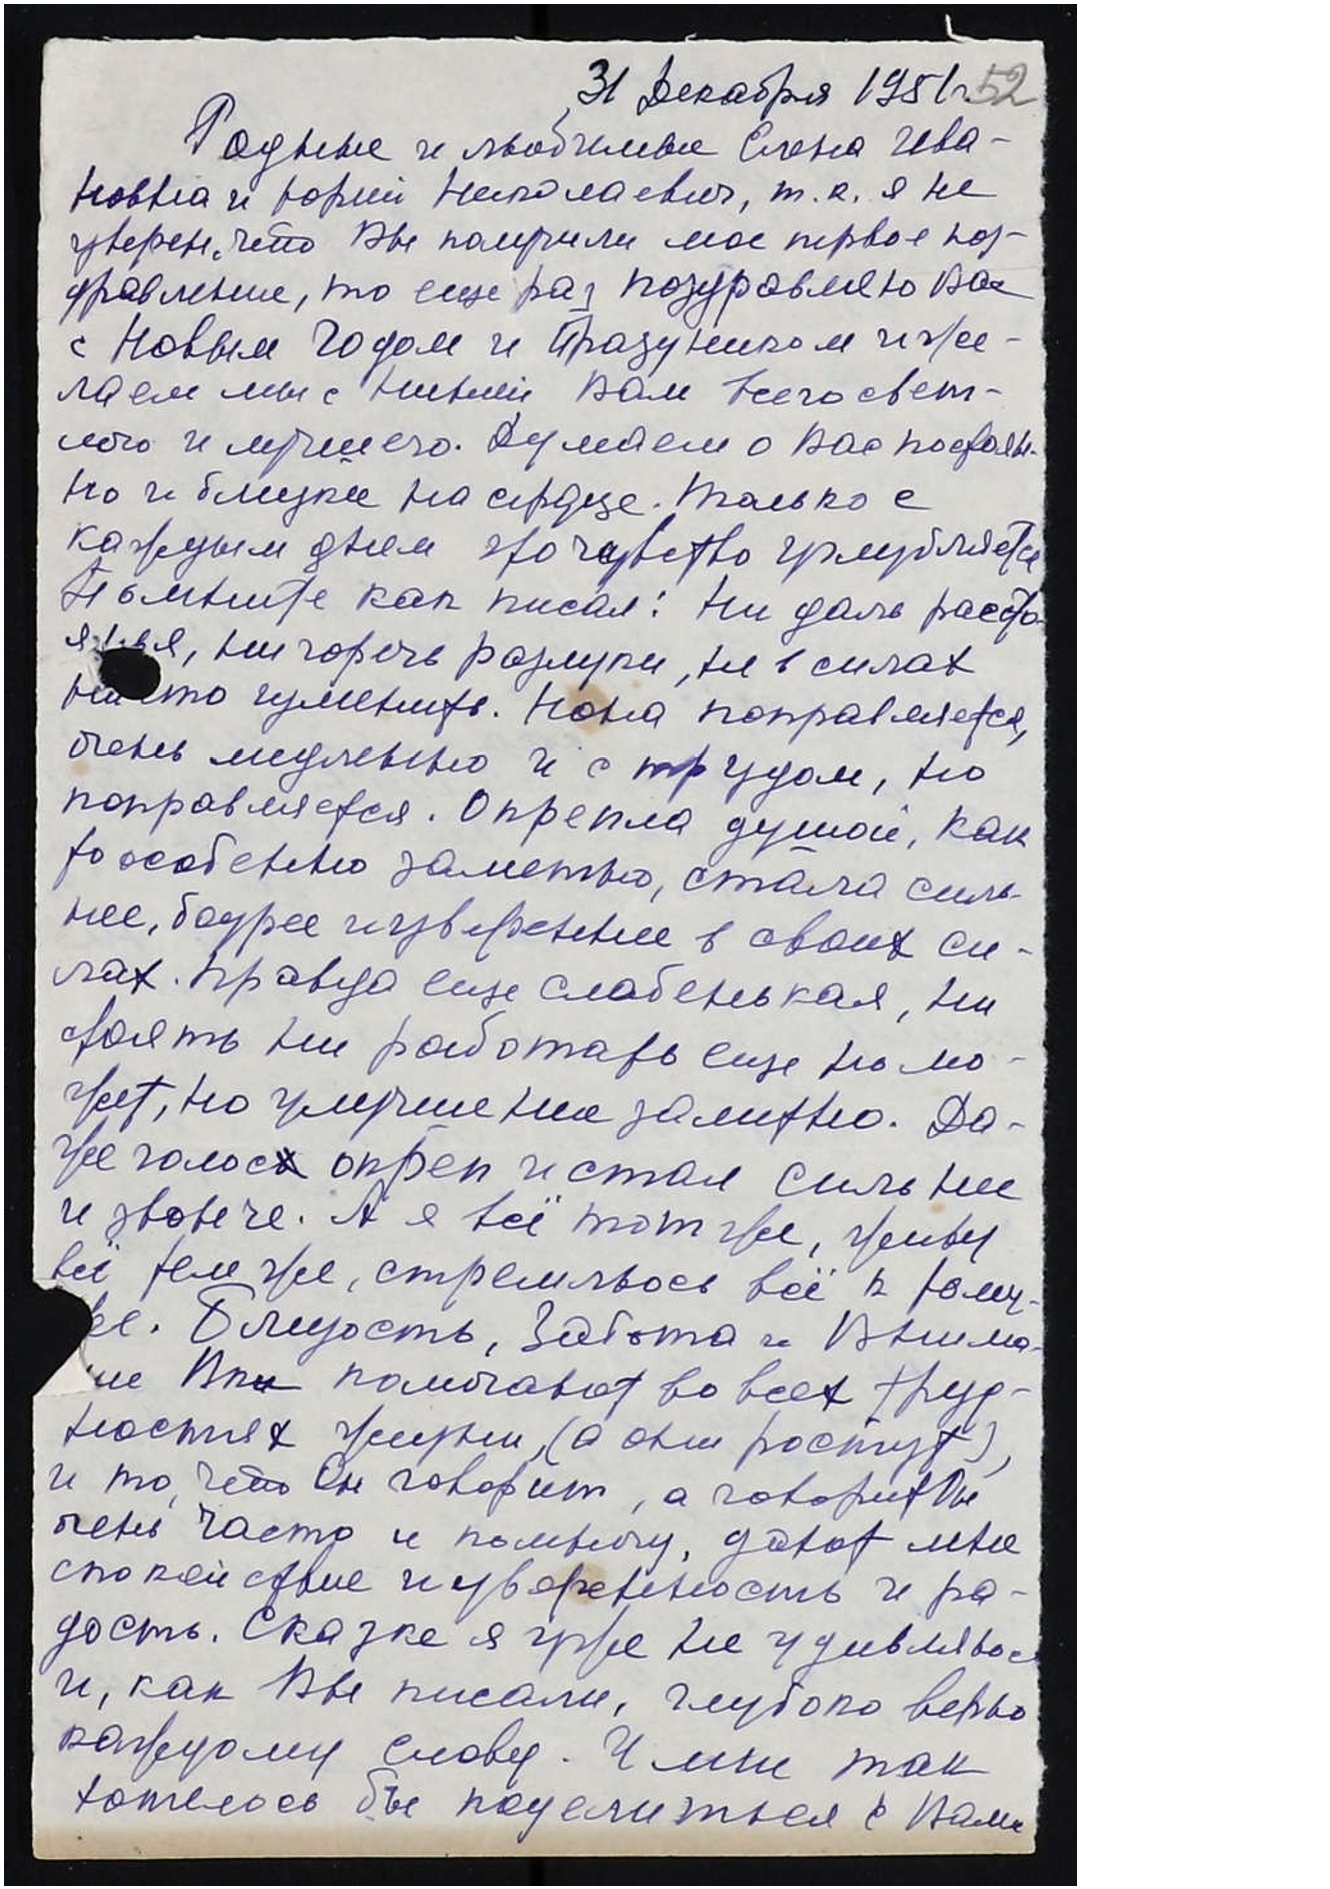 31 Декабря 1951г. 52
Родные и любимые Елена Ива-
новна и Юрий Николаевич, т.к. я не
уверен, что Вы получили мое первое поз-
дравление, то еще раз поздравляю Вас
с Новым Годом и Праздником и же-
лаем мы с Ниной Вам всего свет-
лого и лучшего. Думаем о Вас постоян-
но и близки на сердце. Только с
каждым днем это чувство углубляется
Помните как писал: Ни даль расто-
янья, ни горечь разлуки, не в силах
ничто изменить. Нона поправляется,
очень медленно и с трудом, но
поправляется. Окрепла душой, как
то особенно заметно, стала силь-
нее, бодрее и увереннее в своих си-
лах. Правда еще слабенькая, ни
стоять ни работать еще не мо-
жет, но улучшение заметно. Да-
же голос окреп и стал сильнее
и звонче. А я всё тот же, живу
всё тем же, стремлюсь всё к тому-
же. Близость, Забота и Внима-
ние помогают во всех труд-
ностях жизни, (а они ростут),
и то, что Он говорит, а говорит Он
очень часто и помногу, дают мне
спокойствие и уверенность и ра-
дость. Сказке я уже не удивляюсь
и, как Вы писали, глубоко верю
каждому слову. И мне так
хотелось бы поделиться с Вами